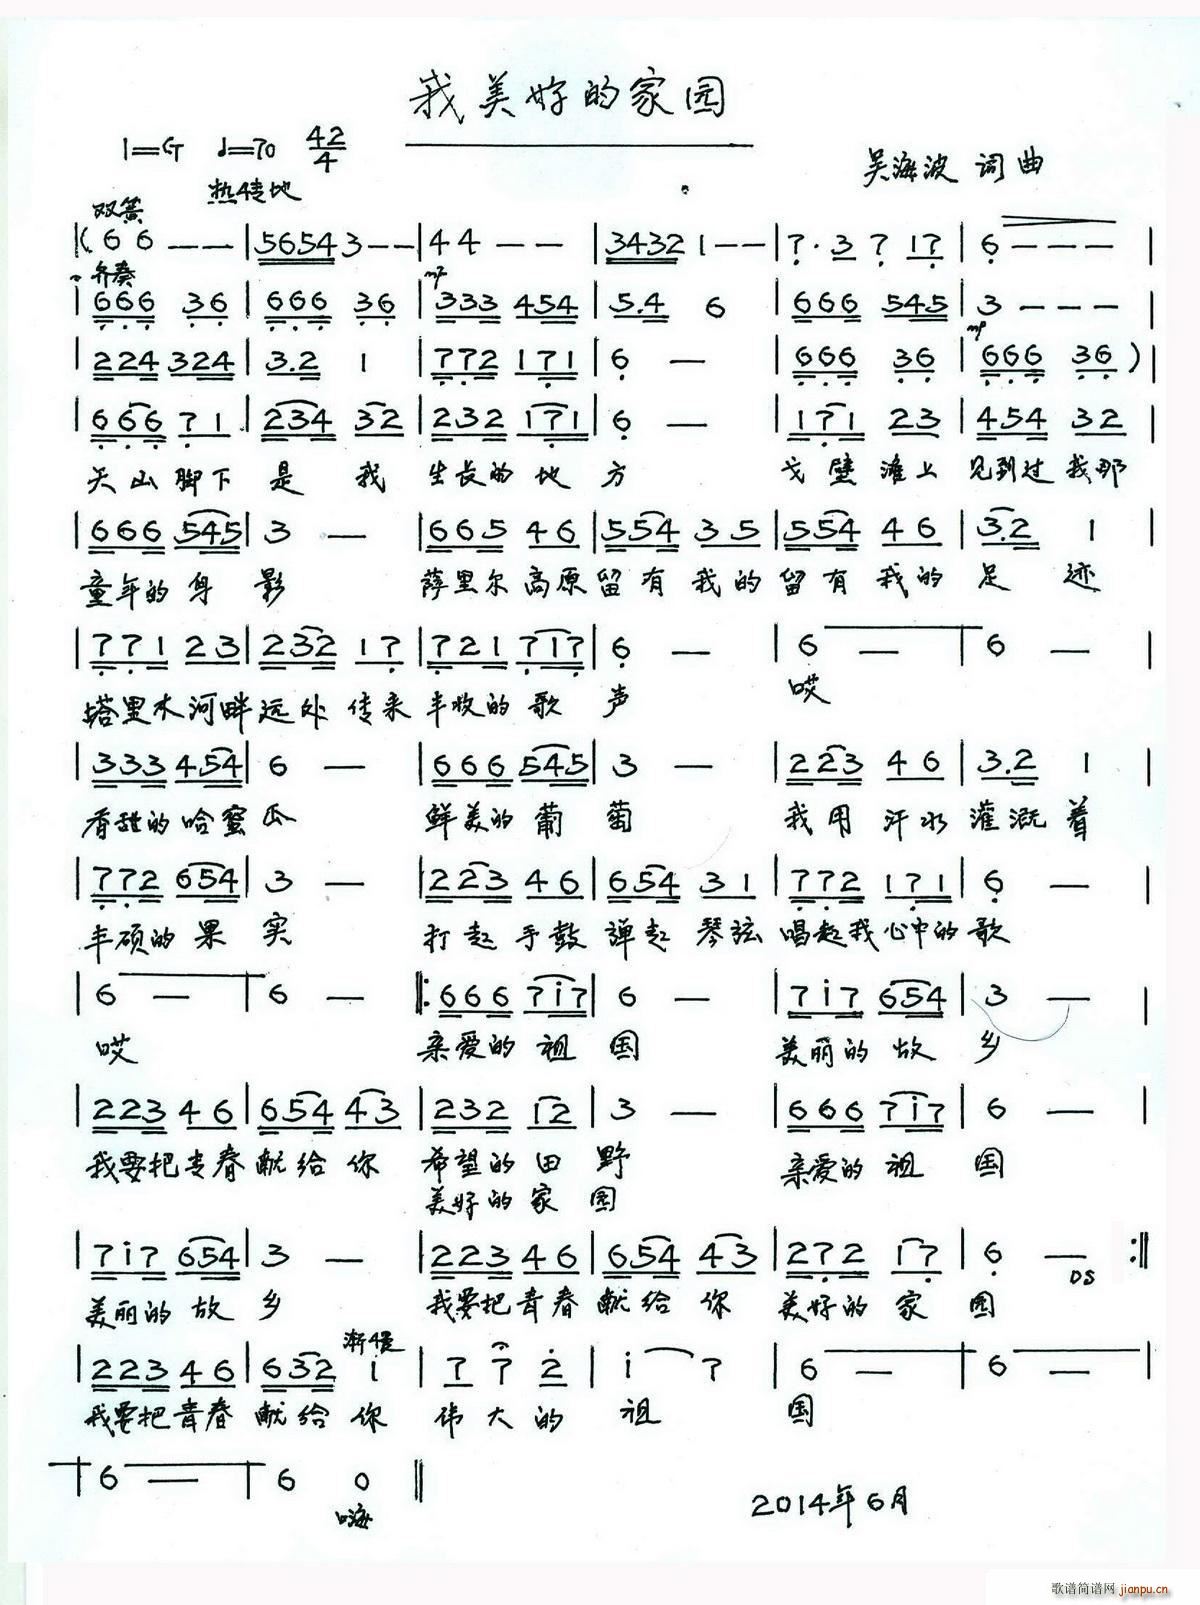 我美好的家园
1=G ♩=70 42/4
吴海波 词曲
热情地
双簧
|( 6 6 — — | 5654 3 — — | 4 4 — — | 3432 1 — — | 7 · 3 7 17 | 6 — — — |
齐奏 mf
| 666 36 | 666 36 | 333 454 | 5.4 6 | 666 545 | 3 — — — |
mp
| 224 324 | 3.2 1 | 772 171 | 6 — | 666 36 | 666 36 ) |
| 666 71 | 234 32 | 232 171 | 6 — | 171 23 | 454 32 |
天山脚下 是 我 生长的地 方 戈壁滩上 见到过我那
| 666 545 | 3 — | 665 46 | 554 35 | 554 46 | 3.2 1 |
童年的身 影 萨里尔高原留有我的留有我的足 迹
| 771 23 | 232 17 | 721 717 | 6 — | 6 — | 6 — |
塔里木河畔远处传来丰收的歌 声 哎
| 333 454 | 6 — | 666 545 | 3 — | 223 46 | 3.2 1 |
香甜的哈蜜瓜 鲜美的葡 萄 我用汗水灌溉着
| 772 654 | 3 — | 223 46 | 654 31 | 772 171 | 6 — |
丰硕的果 实 打起手鼓弹起琴弦唱起我心中的歌
| 6 — | 6 — |: 666 7i7 | 6 — | 7i7 654 | 3 — |
哎 亲爱的祖 国 美丽的故 乡
| 223 46 | 654 43 | 232 12 | 3 — | 666 7i7 | 6 — |
我要把青春献给你 希望的田 野 亲爱的祖 国
美好的家 园
| 7i7 654 | 3 — | 223 46 | 654 43 | 272 17 | 6 — :‖
DS
美丽的故 乡 我要把青春献给你 美好的家 园
渐慢
| 223 46 | 632 i | 7 7 2 | i 7 | 6 — | 6 — |
我要把青春献给你 伟大的 祖 国
| 6 — | 6 0 ‖
嗨
2014年6月
歌谱简谱网 jianpu.cn